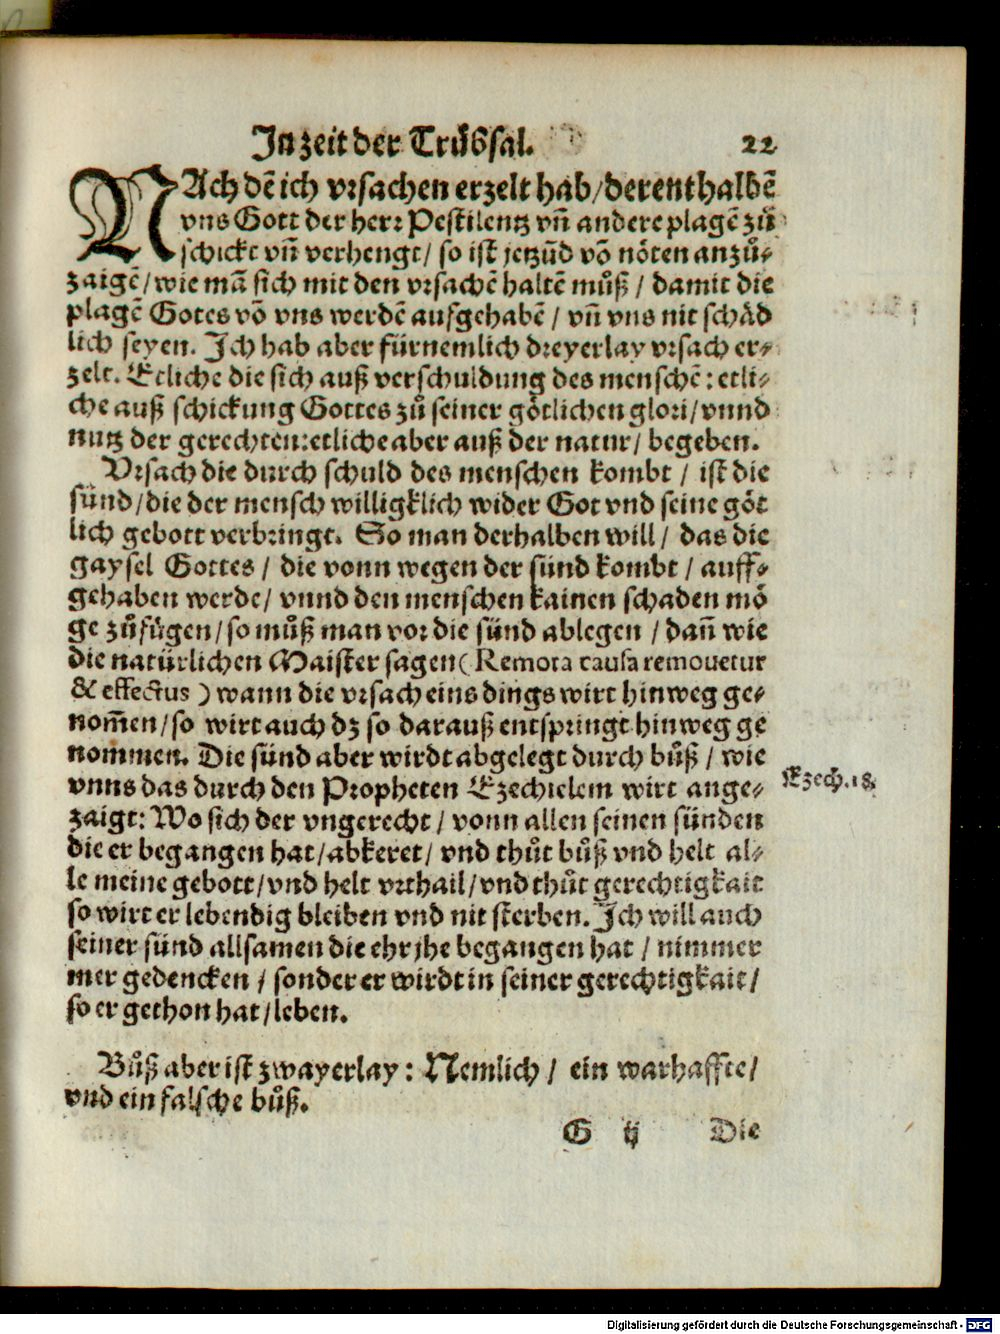 In zeit der Trübsal. 22
NAch dē ich vrsachen erzelt hab/derenthalbē
vns Gott der herr Pestilentz vñ andere plagē zů
schickt vñ verhengt/ so ist jetzūd vō nöten anzů-
zaigē/wie mā sich mit den vrsachē haltē můß/ damit die
plagē Gotes vō vns werdē aufgehabē/ vñ vns nit schåd
lich seyen. Ich hab aber fürnemlich dreyerlay vrsach er-
zelt. Etliche die sich auß verschuldung des menschē: etli-
che auß schickung Gottes zů seiner götlichen glori/vnnd
nutz der gerechten:etliche aber auß der natur/ begeben.
Vrsach die durch schuld des menschen kombt/ ist die
sünd/die der mensch willigklich wider Got vnd seine göt
lich gebott verbringt. So man derhalben will/ das die
gaysel Gottes/ die vonn wegen der sünd kombt/ auff-
gehaben werde/ vnnd den menschen kainen schaden mö
ge zůfügen/so můß man vor die sünd ablegen/dañ wie
die natürlichen Maister sagen(Remota causa remouetur
& effectus) wann die vrsach eins dings wirt hinweg ge-
nom̄en/so wirt auch dz so darauß entspringt hinweg ge
nommen. Die sünd aber wirdt abgelegt durch bůß/ wie
vnns das durch den Propheten Ezechielem wirt ange-
zaigt: Wo sich der vngerecht/ vonn allen seinen sünden
die er begangen hat/abkeret/ vnd thůt bůß vnd helt al-
le meine gebott/vnd helt vrthail/vnd thůt gerechtigkait
so wirt er lebendig bleiben vnd nit sterben. Ich will auch
seiner sünd allsamen die ehr jhe begangen hat/ nimmer
mer gedencken/ sonder er wirdt in seiner gerechtigkait/
so er gethon hat/leben.
Ezech.18.
Bůß aber ist zwayerlay: Nemlich/ ein warhaffte/
vnd ein falsche bůß.
G ij Die
Digitalisierung gefördert durch die Deutsche Forschungsgemeinschaft - DFG